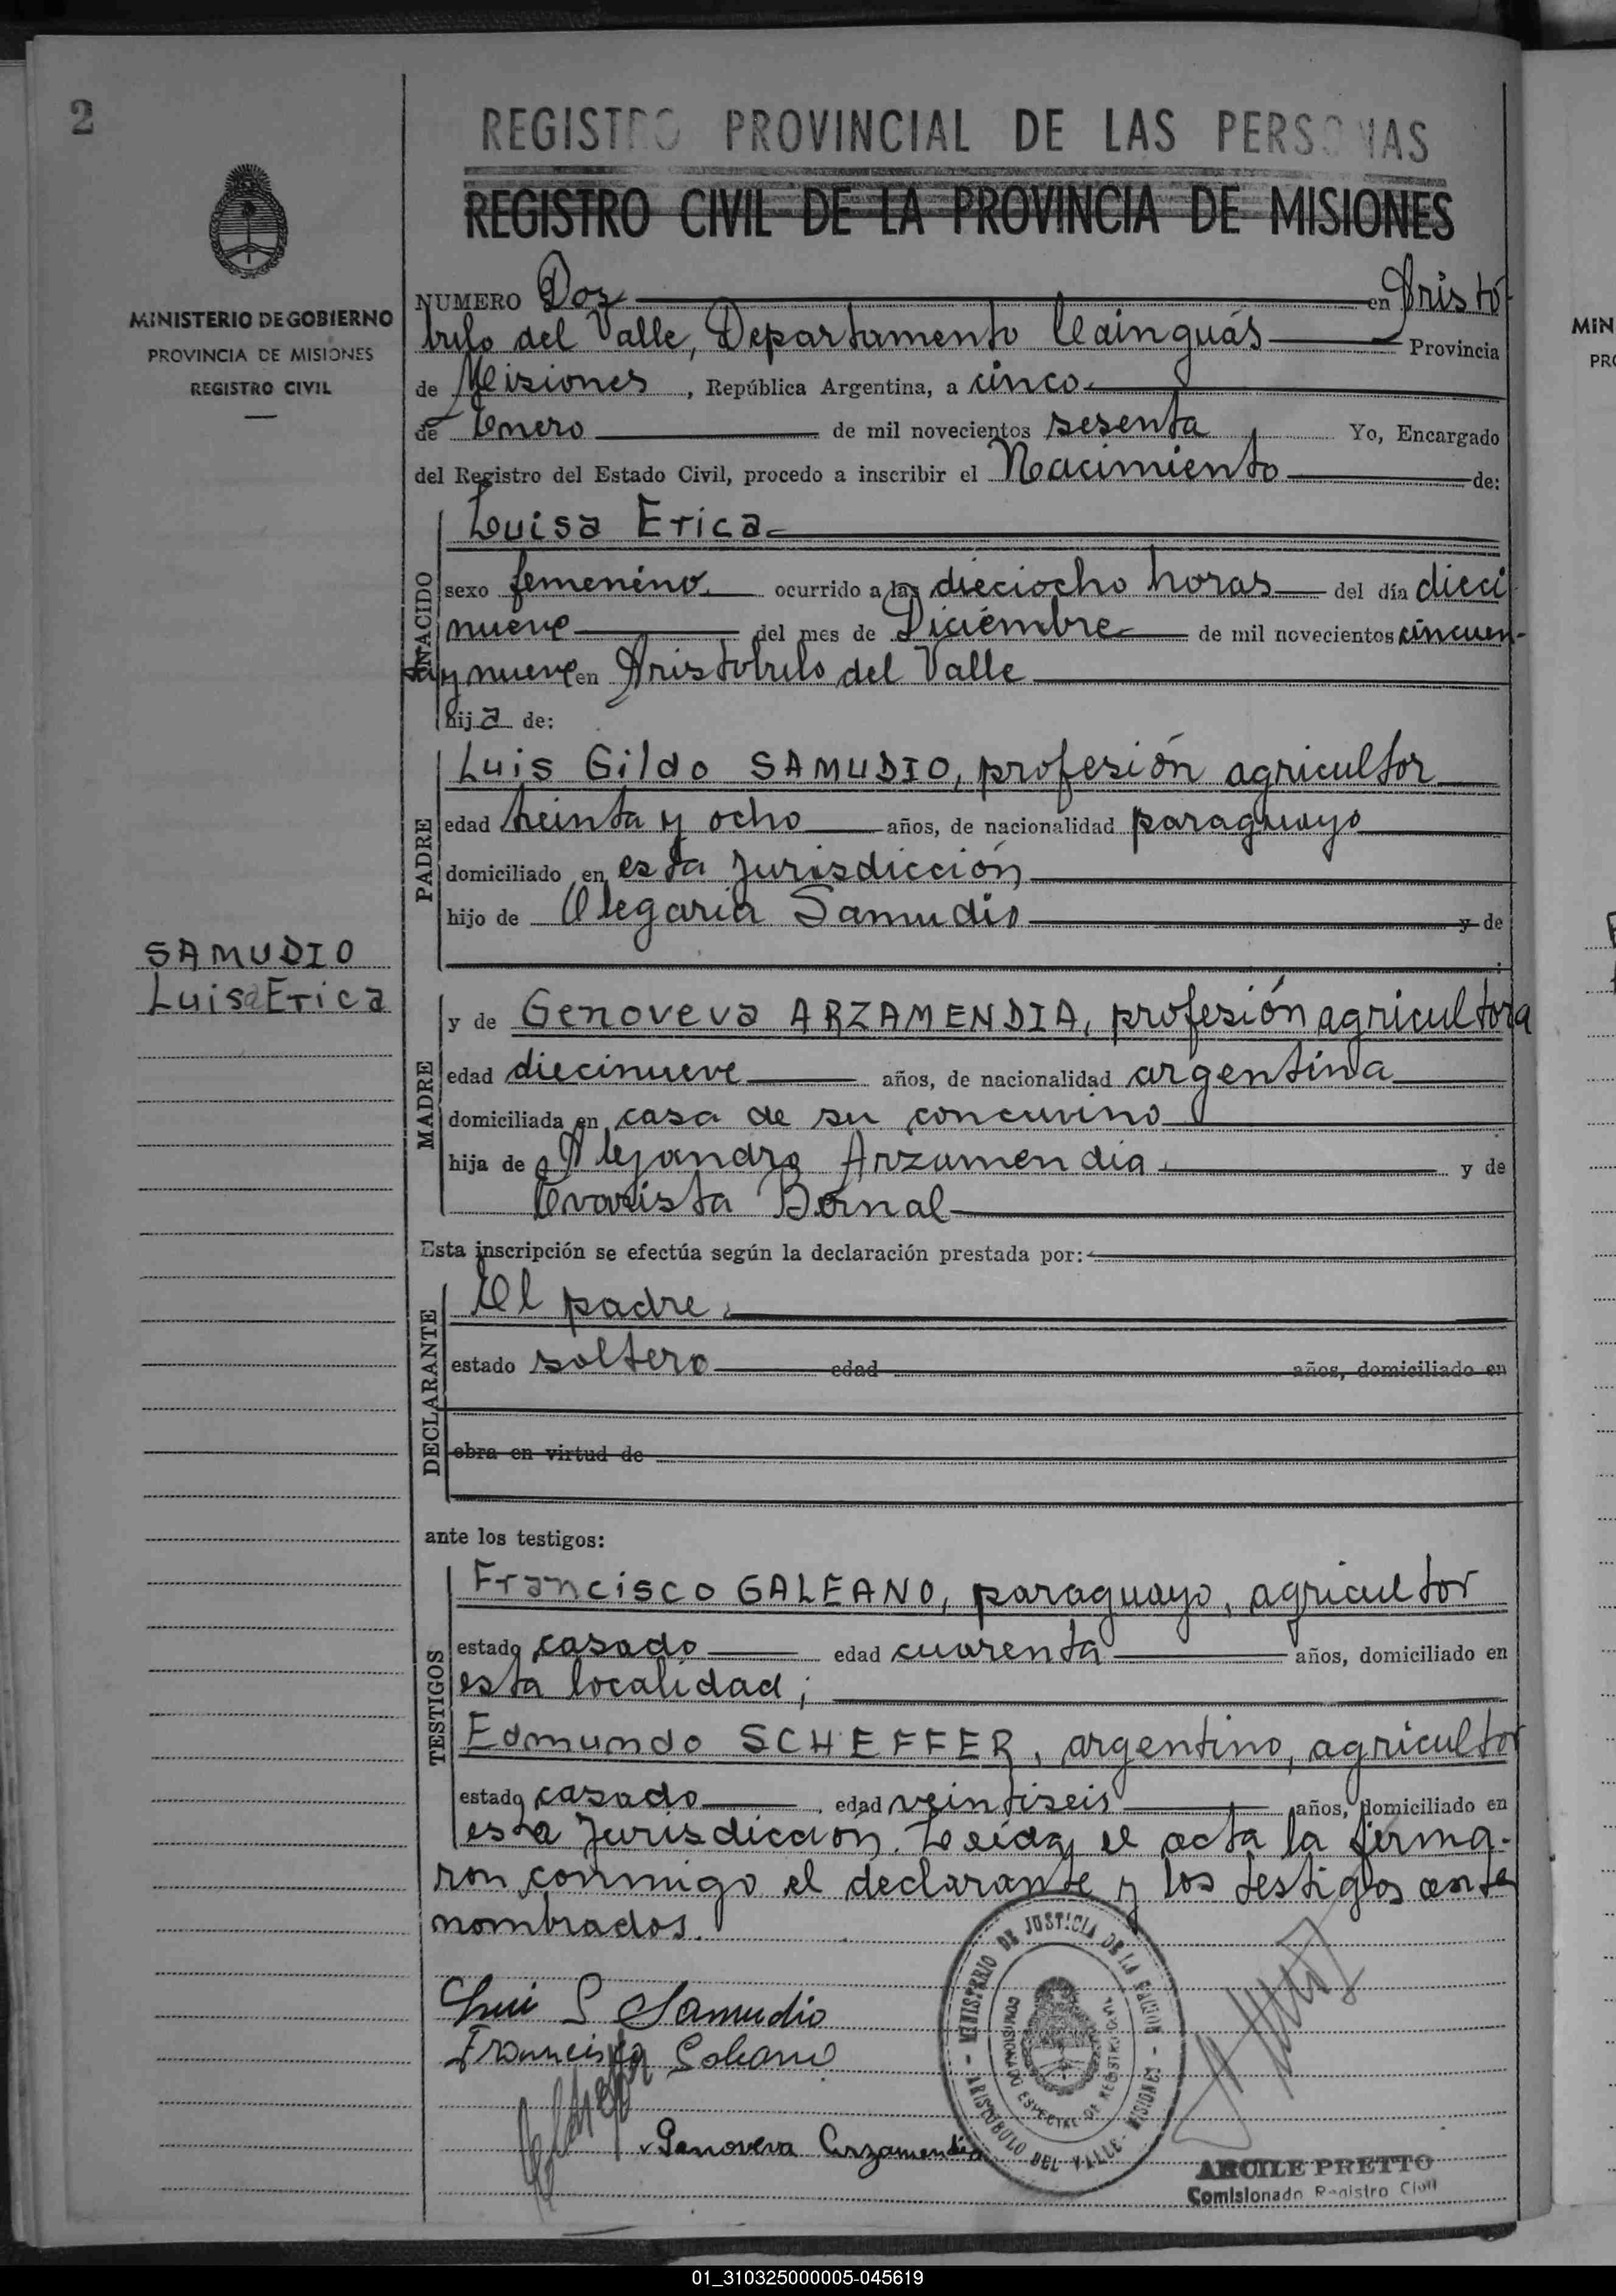 2
REGISTRO PROVINCIAL DE LAS PERSONAS
REGISTRO CIVIL DE LA PROVINCIA DE MISIONES
MINISTERIO DE GOBIERNO
PROVINCIA DE MISIONES
REGISTRO CIVIL
NUMERO Dos en Aristó
bulo del Valle, Departamento Cainguás Provincia
de Misiones, República Argentina, a cinco
de Enero de mil novecientos sesenta Yo, Encargado
del Registro del Estado Civil, procedo a inscribir el Nacimiento de:
NACIDO
Luisa Erica
sexo femenino ocurrido a las dieciocho horas del día dieci
nueve del mes de Diciembre de mil novecientos cincuen-
ta y nueve en Aristobulo del Valle
hija de:
PADRE
Luis Gildo SAMUDIO, profesión agricultor
edad treinta y ocho años, de nacionalidad paraguayo
domiciliado en esta Jurisdicción
hijo de Olegaria Samudio y de
SAMUDIO
Luisa Erica
MADRE
y de Genoveva ARZAMENDIA, profesión agricultora
edad diecinueve años, de nacionalidad argentina
domiciliada en casa de su concuvino
hija de Alejandro Arzamendia y de
Evarista Bernal
Esta inscripción se efectúa según la declaración prestada por:
DECLARANTE
El padre
estado soltero edad años, domiciliado en
obra en virtud de
ante los testigos:
TESTIGOS
Francisco GALEANO, paraguayo, agricultor
estado casado edad cuarenta años, domiciliado en
esta localidad;
Edmundo SCHEFFER, argentino, agricultor
estado casado edad veintiseis años, domiciliado en
esta Jurisdicción. Leida el acta la firma-
ron conmigo el declarante y los testigos ante
nombrados.
Luis G Samudio
Francisco Galeano
Genoveva Arzamendia
MINISTERIO DE JUSTICIA DE LA NACION
COMISIONADO ESPECIAL DE REGISTRO CIVIL
ARISTOBULO DEL VALLE - MISIONES
ARCILE PRETTO
Comisionado Registro Civil
MIN
01_310325000005-045619